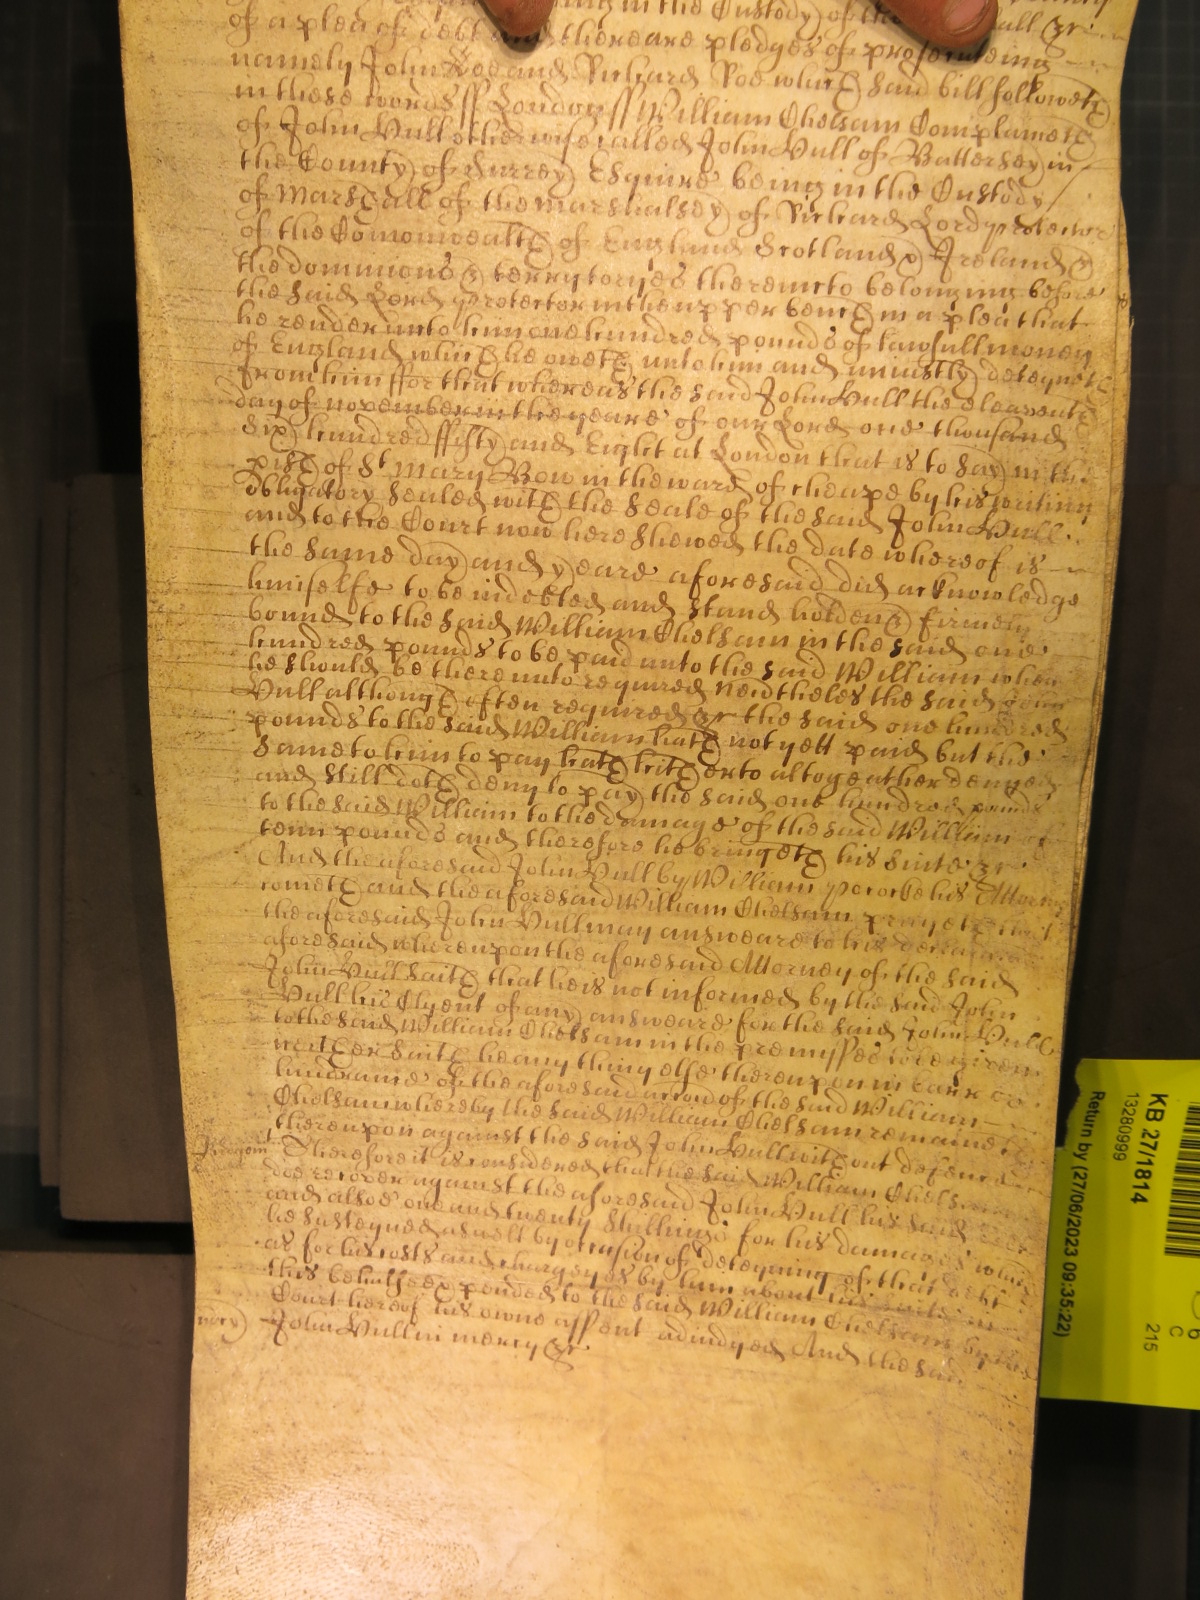 being in the Custody of the all &c
of a plea of debt and there are pledges of prosecuteing
namely John Doe and Richard Roe which said bill followeth
in these words ss London ss William Chelsam Complaineth
of John Vull otherwise called John Vull of Battersey in
the County of Surrey Esquire being in the Custody
of Marshall of the Marshalsey of Richard Lord protector
of the Comonwealth of England Scotland & Ireland &
the dominions & terrytoryes thereunto belonging before
the said Lord protector in the upper bench in a plea that
he render unto him one hundred pounds of lawfull money
of England which he oweth unto him and uniustly deteyneth
from him ffor that whereas the said John Vull the eleaventh
day of november in the yeare of our Lord one thousand
six hundred ffifty and Eight at London that is to say in the
pish of St Mary Bow in the ward of cheape by his writing
obligatory sealed with the seale of the said John Vull
and to the Court now here shewed the date whereof is
the same day and yeare aforesaid did acknowledge
himselfe to be indebted and stand holden & firmely
bound to the said William Chelsam in the said one
hundred pounds to be paid unto the said William when
he should be thereunto required Nevtheles the said John
Vull although often required &c the said one hundred
pounds to the said William hath not yett paid but the
same to him to pay hath hitherto altogeather denyed
and still doth deny to pay the said one hundred pounds
to the said William to the damage of the said William of
tenn pounds and therefore he bringeth his suite &c
And the aforesaid John Vull by William his Attorney
cometh and the aforesaid William Chelsam prayeth that
the aforesaid John Vull may answeare to his
aforesaid whereupon the aforesaid Attorney of the said
John Vull saith that he is not informed by the said John
Vull his Clyent of any answeare for the said John Vull
to the said William Chelsam in the premysses to be given
neither saith he any thing else thereupon in barr or
hindrance of the aforesaid accon of the said William
Chelsam whereby the said William Chelsam remaineth
thereupon against the said John Vull without defence
Therefore it is considered that the said William Chelsam
doe recover against the aforesaid John Vull his said debt
and alsoe one and twenty shillings for his damages which
he susteyned aswell by occasion of deteyning of that debt
as for his costs and chargyes by him about his suite in
this behalfe expended to the said William Chelsam by the
Court hereof his owne assent adiudged And the said
mercy John Vull in mercy &c
KB 27/1814
13280999
Return by (27/06/2023 09:35:22)
215
C